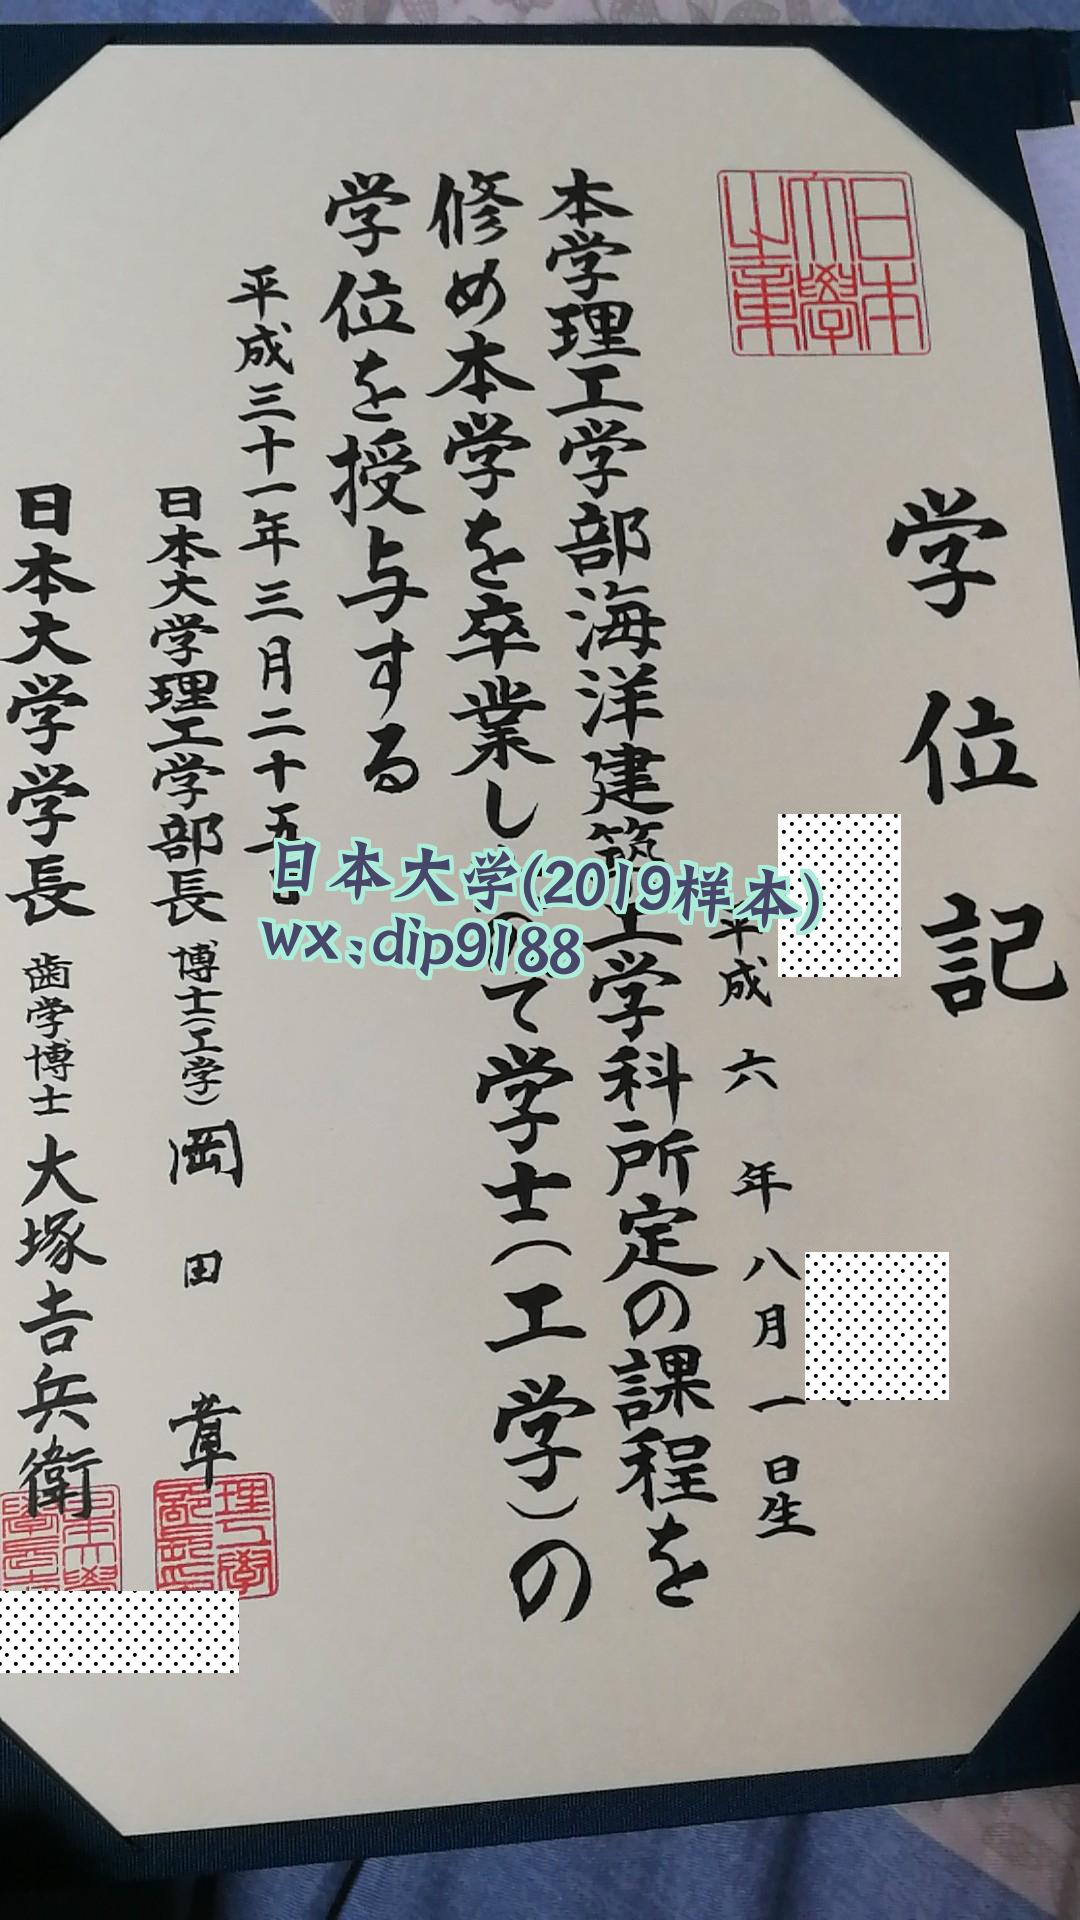 日本大學之章
学位記
平成六年八月一日生
本学理工学部海洋建築工学科所定の課程を
修め本学を卒業し
て学士(工学)の
学位を授与する
平成三十一年三月二十五
日本大学理工学部長 博士(工学) 岡田 章
日本大学学長 歯学博士 大塚吉兵衛
日本大学(2019样本)
wx:dip9188